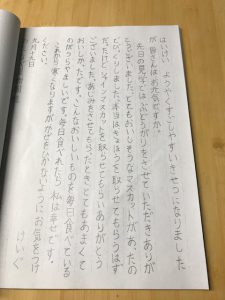 はいけい　ようやくすごしやすいきせつになりました
が皆さんはお元気ですか。
先日の見学ではぶどうがりをさせていただきありが
とうございました。とてもおいしそうなマスカットがあったの
でびっくりしました。本当はきょほうを取らせてもらうはず
だったけどシャインマスカットを取らせてもらいありがとう
ございました。あじみをさせてもらったときとてもあまくて
おいしかったです。こんなおいしいものを毎日食べている
のがうらやましいです。毎日食べれたら私は幸せです。
これから寒くなりますがかぜをひかないようにお気をつけ
ください。
けいぐ
九月十五日